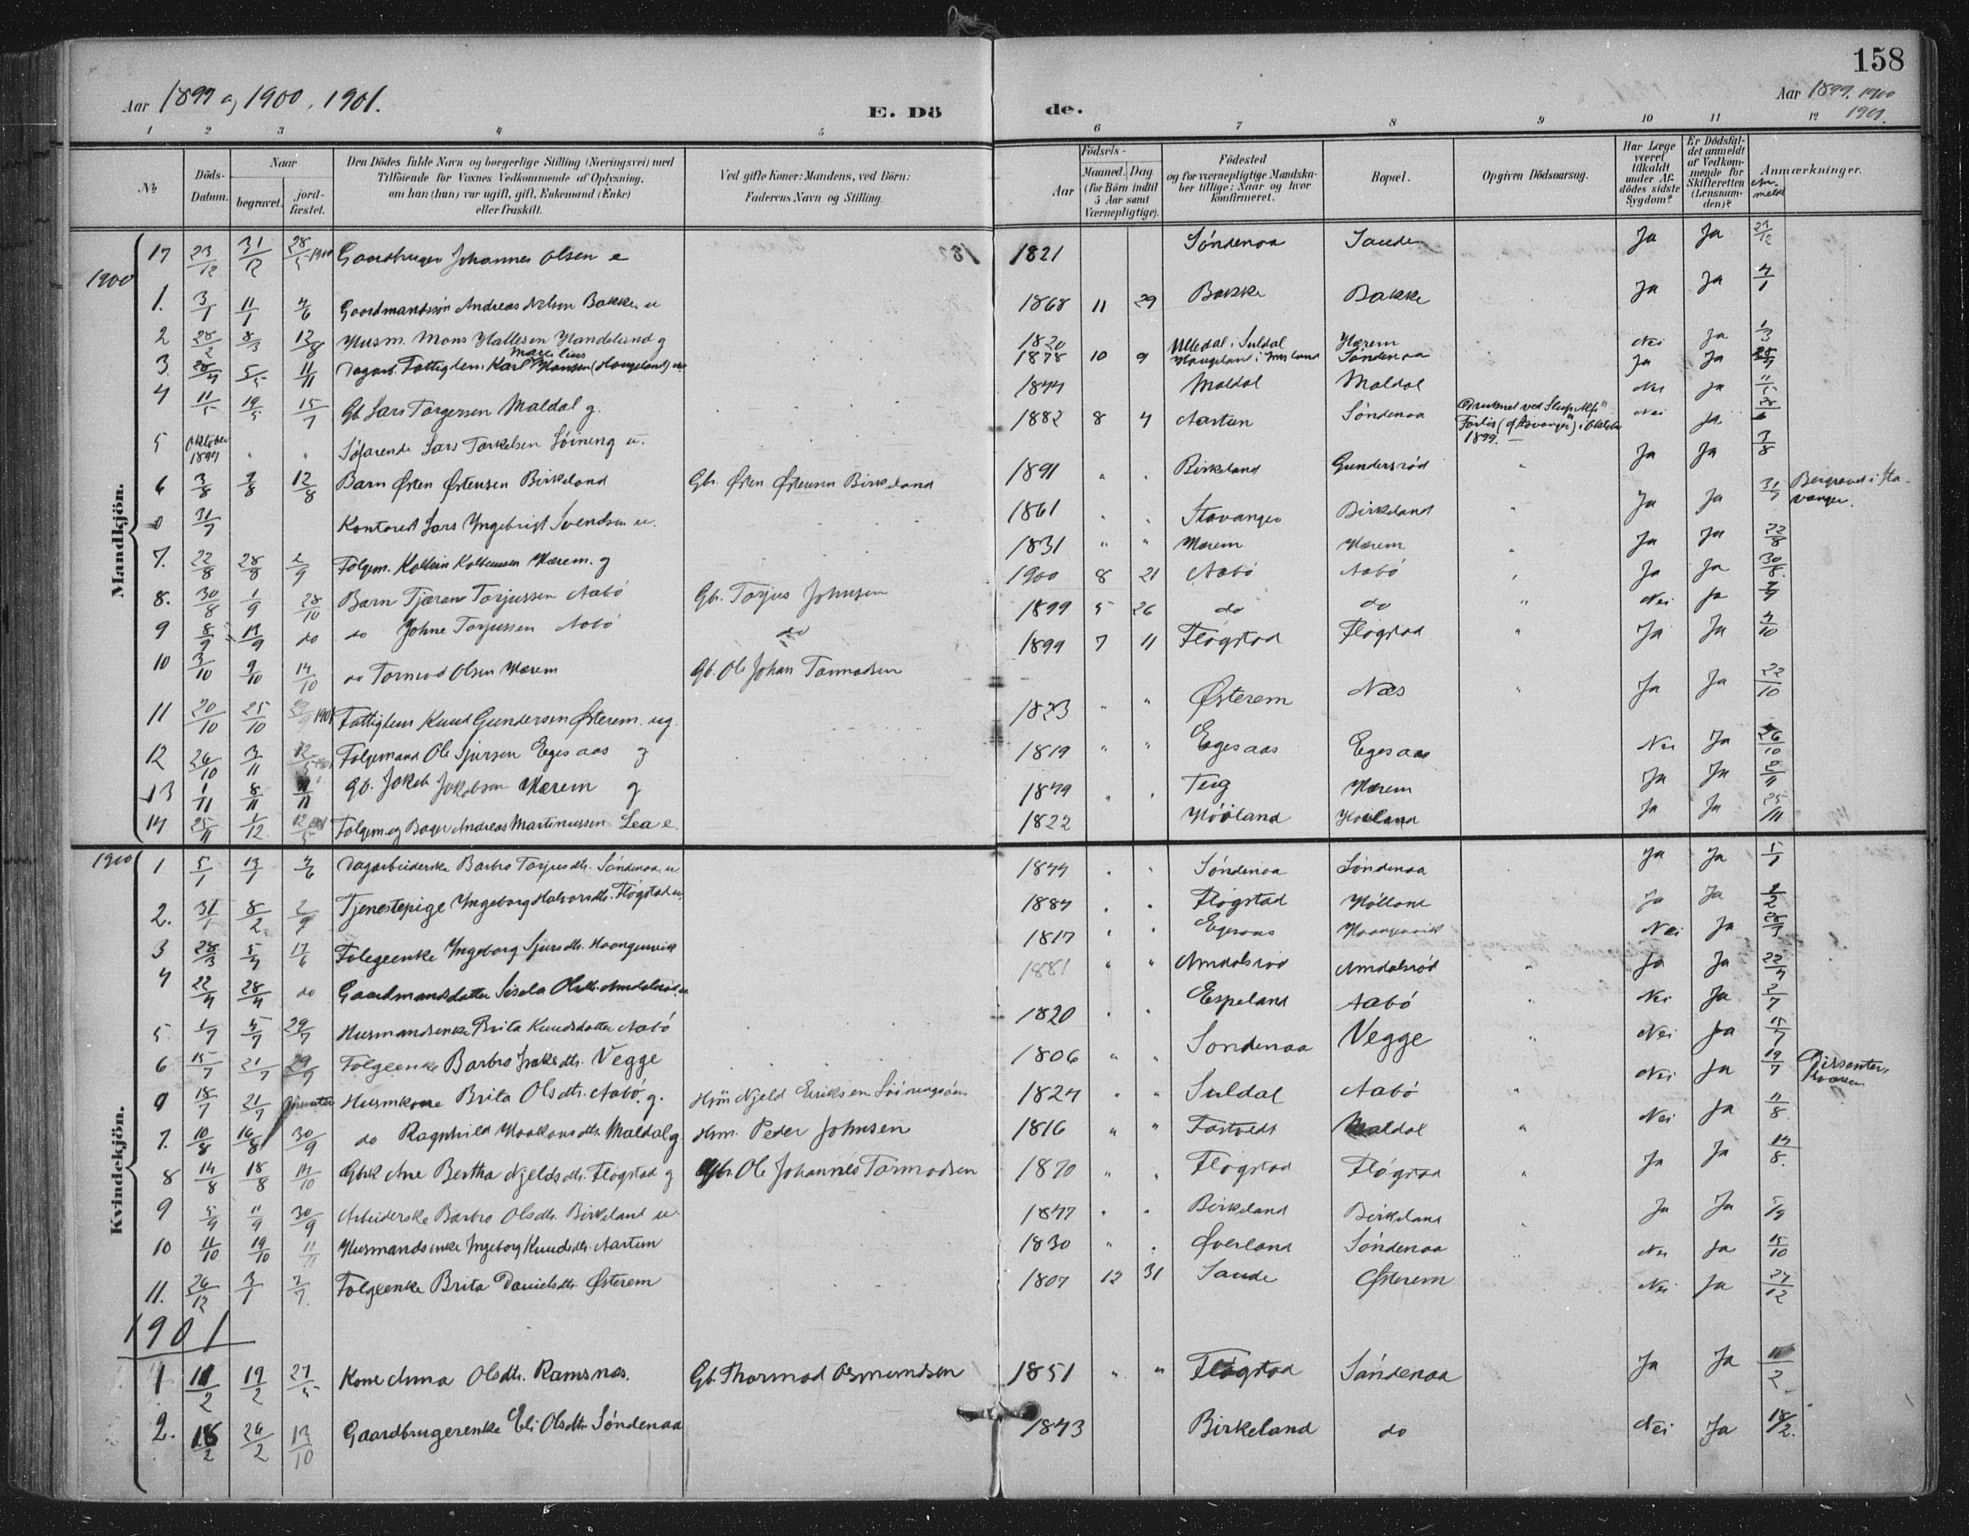 158
Aar 1899 og 1900, 1901.
E. Dö
de.
Aar 1899. 1900
1901.
1 2 3 4 5 6 7 8 9 10 11 12
№
Döds-Datum.
Naar
begravet.
jord-fæstet.
Den Dödes fulde Navn og borgerlige Stilling (Næringsvei) med
Tilföiende for Voxnes Vedkommende af Oplysning,
om han (hun) var ugift, gift, Enkemand (Enke)
eller fraskilt.
Ved gifte Koner: Mandens, ved Börn:
Faderens Navn og Stilling.
Födsels-
Aar
Maaned. Dag
(for Börn indtil
5 Aar samt
Værnepligtige).
Födested
og for værnepligtige Mandska-
ber tillige: Naar og hvor
konfirmeret.
Bopæl.
Opgiven Dödsaarsag.
Har Læge
været
tilkaldt
under Af-
dödes sidste
Sygdom?
Er Dödsfal-
det anmeldt
af Vedkom-
mende for
Skifteretten
(Lensman-
den)?
Anmærkninger.
Mandkjön.
17 23/12 31/12 28/5 1900 Gaardbruger Johannes Olsen e 1821 Söndenaa Saude Ja Ja 23/12
1900
1. 3/1 11/1 4/6 Gaardmandssön Andreas Nelson Bakke u 1868 11 29 Bakke Bakke Ja Ja 4/1
2 28/2 8/3 12/8 Husm. Mons Hallesen Handeland g 1820 Ulledal i Suldal Hærem Nei Ja 1/3
3. 28/4 5/5 11/11 Dagarb. Fattiglem. Karl Hansen (Haugeland) u 1878 10 9 Söndenaa Ja Ja
4 11/5 19/5 15/7 Gb. Lars Torgersen Maldal g. 1844 Maldal Maldal Nei Ja 11/5
5 Oktober 1899 " " Söfarende Lars Torkelsen Söineng u. 1882 8 4 Aartun Söndenaa Druknet ved
1899. Nei Ja
6 3/8 9/8 12/8 Barn Østen Østensen Birkeland Gb. Østen Østensen Birkeland 1891 " " Birkeland Gundersröd " Ja Ja 7/8
0 31/7 Kontorist Lars Yngebrigt Svendsen u. 1861 " " Stavanger Birkeland Ja Ja 31/7 Begravet i Sta-
vanger.
7. 22/8 28/8 2/9 Folgem. Kolbein Kolbeinsen Hærem. g 1831 " " Hærem Hærem " Ja Ja 22/8
8. 30/8 1/9 28/10 Barn Tjæran Torjussen Aabö Gb. Torjus Johnsen 1900 8 21 Aabö Aabö Ja Ja 30/8
9 8/9 14/9 do do Johne Torjussen Aabö do 1899 5 26 do do " Nei Ja
10 3/10 9/10 14/10 do Tormod Olsen Hærem Gb. Ole Johan Tormodsen 1899 7 11 Flögstad Flögstad " Ja Ja 4/10
11 20/10 25/10 1901 Fattiglem Knud Gundersen Østerem. ug. 1823 " " Østerem Næs " Ja Ja 22/10
12 26/10 3/11 12/5 1901 Folgemand Ole Sjursen Egesaas g 1819 " " Egesaas Egesaas Nei Ja 26/10
13 1/11 8/11 Gb. Jakob Jakobsen Hærem g 1849 " " Teig Hærem Ja Ja 2/11
14 25/11 1/12 12/5 Folgem. og Bager Andreas Martinussen Lea e. 1822 Hööland Hööland Ja Ja 25/11
Kvindekjön.
1900
1 5/1 13/1 4/6 Dagarbeiderske Barbro Torjusdtr. Söndenaa u 1844 " " Söndenaa Söndenaa Ja Ja 5/1
2. 31/1 8/2 2/9 Tjenestepige Yngeborg Halvorsdtr. Flögstad u. 1884 " " Flögstad Ja Ja 2/2
3 28/3 5/4 17/6 Folgeenke Yngeborg Sjursdtr. Haangenvik 1817 " " Egesaas Haangenvik Nei Ja
4 22/4 28/4 do Gaardmandsdatter Sisela Olsdtr. Amdalsröd u 1881 " " Amdalsröd Amdalsröd " Ja Ja 22/4
5 1/7 5/7 29/7 Husmandsenke Brita Knudsdatter Aabö 1820 " " Espeland Aabö Nei Ja 2/7
6 15/7 21/7 29/7 Folgeenke Barbro Jacksdtr. Vegge 1806 " " Söndenaa Vegge " Nei Ja 15/7
9 18/7 21/7 Dissenter Husmkone Brita Olsdtr. Aabö. g. Njeld Eriksen 1824 " " Suldal Aabö " Nei Ja 19/7 Dissenter,
7. 10/8 16/8 30/9 do Ragnhild Haakonsdtr. Maldal g Hm. Peder Johnsen 1816 " " Fastvedt Maldal " Nei Ja 11/8
8 14/8 18/8 14/10 Gbk Ane Bertha Njeldsdtr. Flögstad g Gbr. Ole Johannes Tormodsen 1870 " " Flögstad Flögstad " Ja Ja 14/8.
9 5/9 11/9 30/9 Arbeiderske Barbro Olsdtr. Birkeland u. 1847 " " Birkeland Birkeland Ja Ja 5/9
10 11/10 19/10 11/11 Husmandsenke Ingeborg Knudsdtr. Aartun 1830 " " Øverland Söndenaa Nei Ja 15/10
11. 26/12 3/1 7/7 Folgeenke Brita Danielsdtr Østerem 1807 12 31 Saude Østerem Nei Ja 27/12
1901
1 11/2 19/2 27/5 Kone Anna Olsdtr. Ramsnæs. Gb. Thormod Osmundsen 1851 " " Flögstad Söndenaa Ja Ja 11/2
2. 18/2 26/2 13/10 Gaardbrugerenke Eli Olsdtr Söndenaa 1843 Birkeland do Nei Ja 18/2.